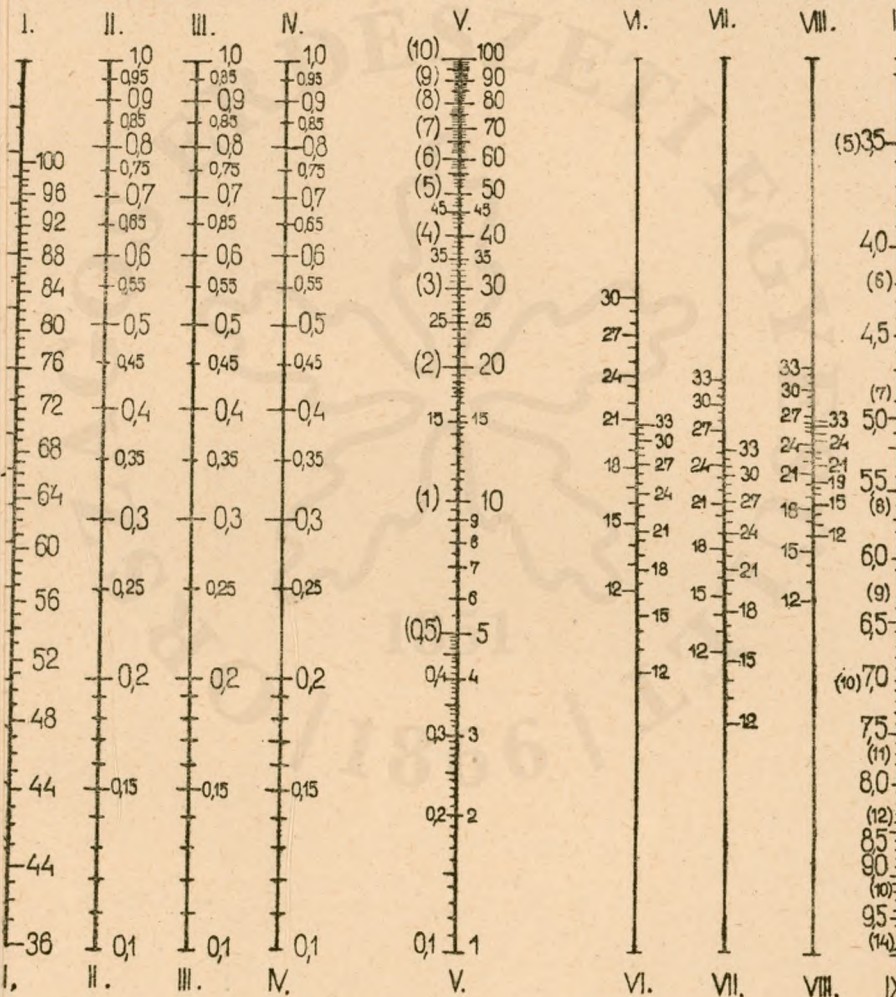 I. II. III. IV. V. VI. VII. VIII.
100
96
92
88
84
80
76
72
68
64
60
56
52
48
44
44
36
1,0
0,95
0,9
0,85
0,8
0,75
0,7
0,65
0,6
0,55
0,5
0,45
0,4
0,35
0,3
0,25
0,2
0,15
0,1
1,0
0,85
0,9
0,85
0,8
0,75
0,7
0,85
0,6
0,55
0,5
0,45
0,4
0,35
0,3
0,25
0,2
0,15
0,1
1,0
0,95
0,9
0,85
0,8
0,75
0,7
0,65
0,6
0,55
0,5
0,45
0,4
0,35
0,3
0,25
0,2
0,15
0,1
(10) 100
(9) 90
(8) 80
(7) 70
(6) 60
(5) 50
45 45
(4) 40
35 35
(3) 30
25 25
(2) 20
15 15
(1) 10
9
8
7
6
(0,5) 5
0,4 4
0,3 3
0,2 2
0,1 1
30
27
24
21
33
30
18 27
24
15
21
18
12
15
12
33
30
27
33
24
30
21 27
24
18
21
15
18
12
15
12
33
30
27 33
24 24
21 21
19
18 15
12
15
12
(5) 3,5
4,0
(6)
4,5
(7)
5,0
5,5
(8)
6,0
(9)
6,5
(10) 7,0
7,5
(11)
8,0
(12)
8,5
9,0
(10)
9,5
(14)
I. II. III. IV. V. VI. VII. VIII. IX
1866